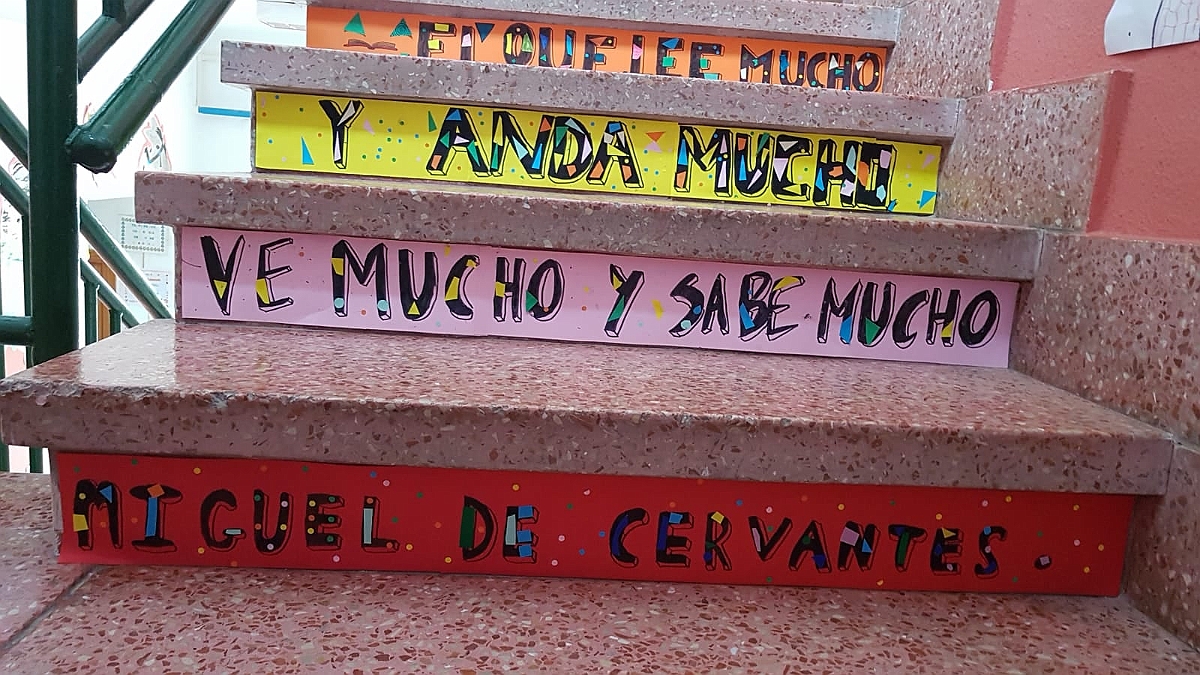 EL QUE LEE MUCHO
Y ANDA MUCHO
VE MUCHO Y SABE MUCHO
MIGUEL DE CERVANTES.